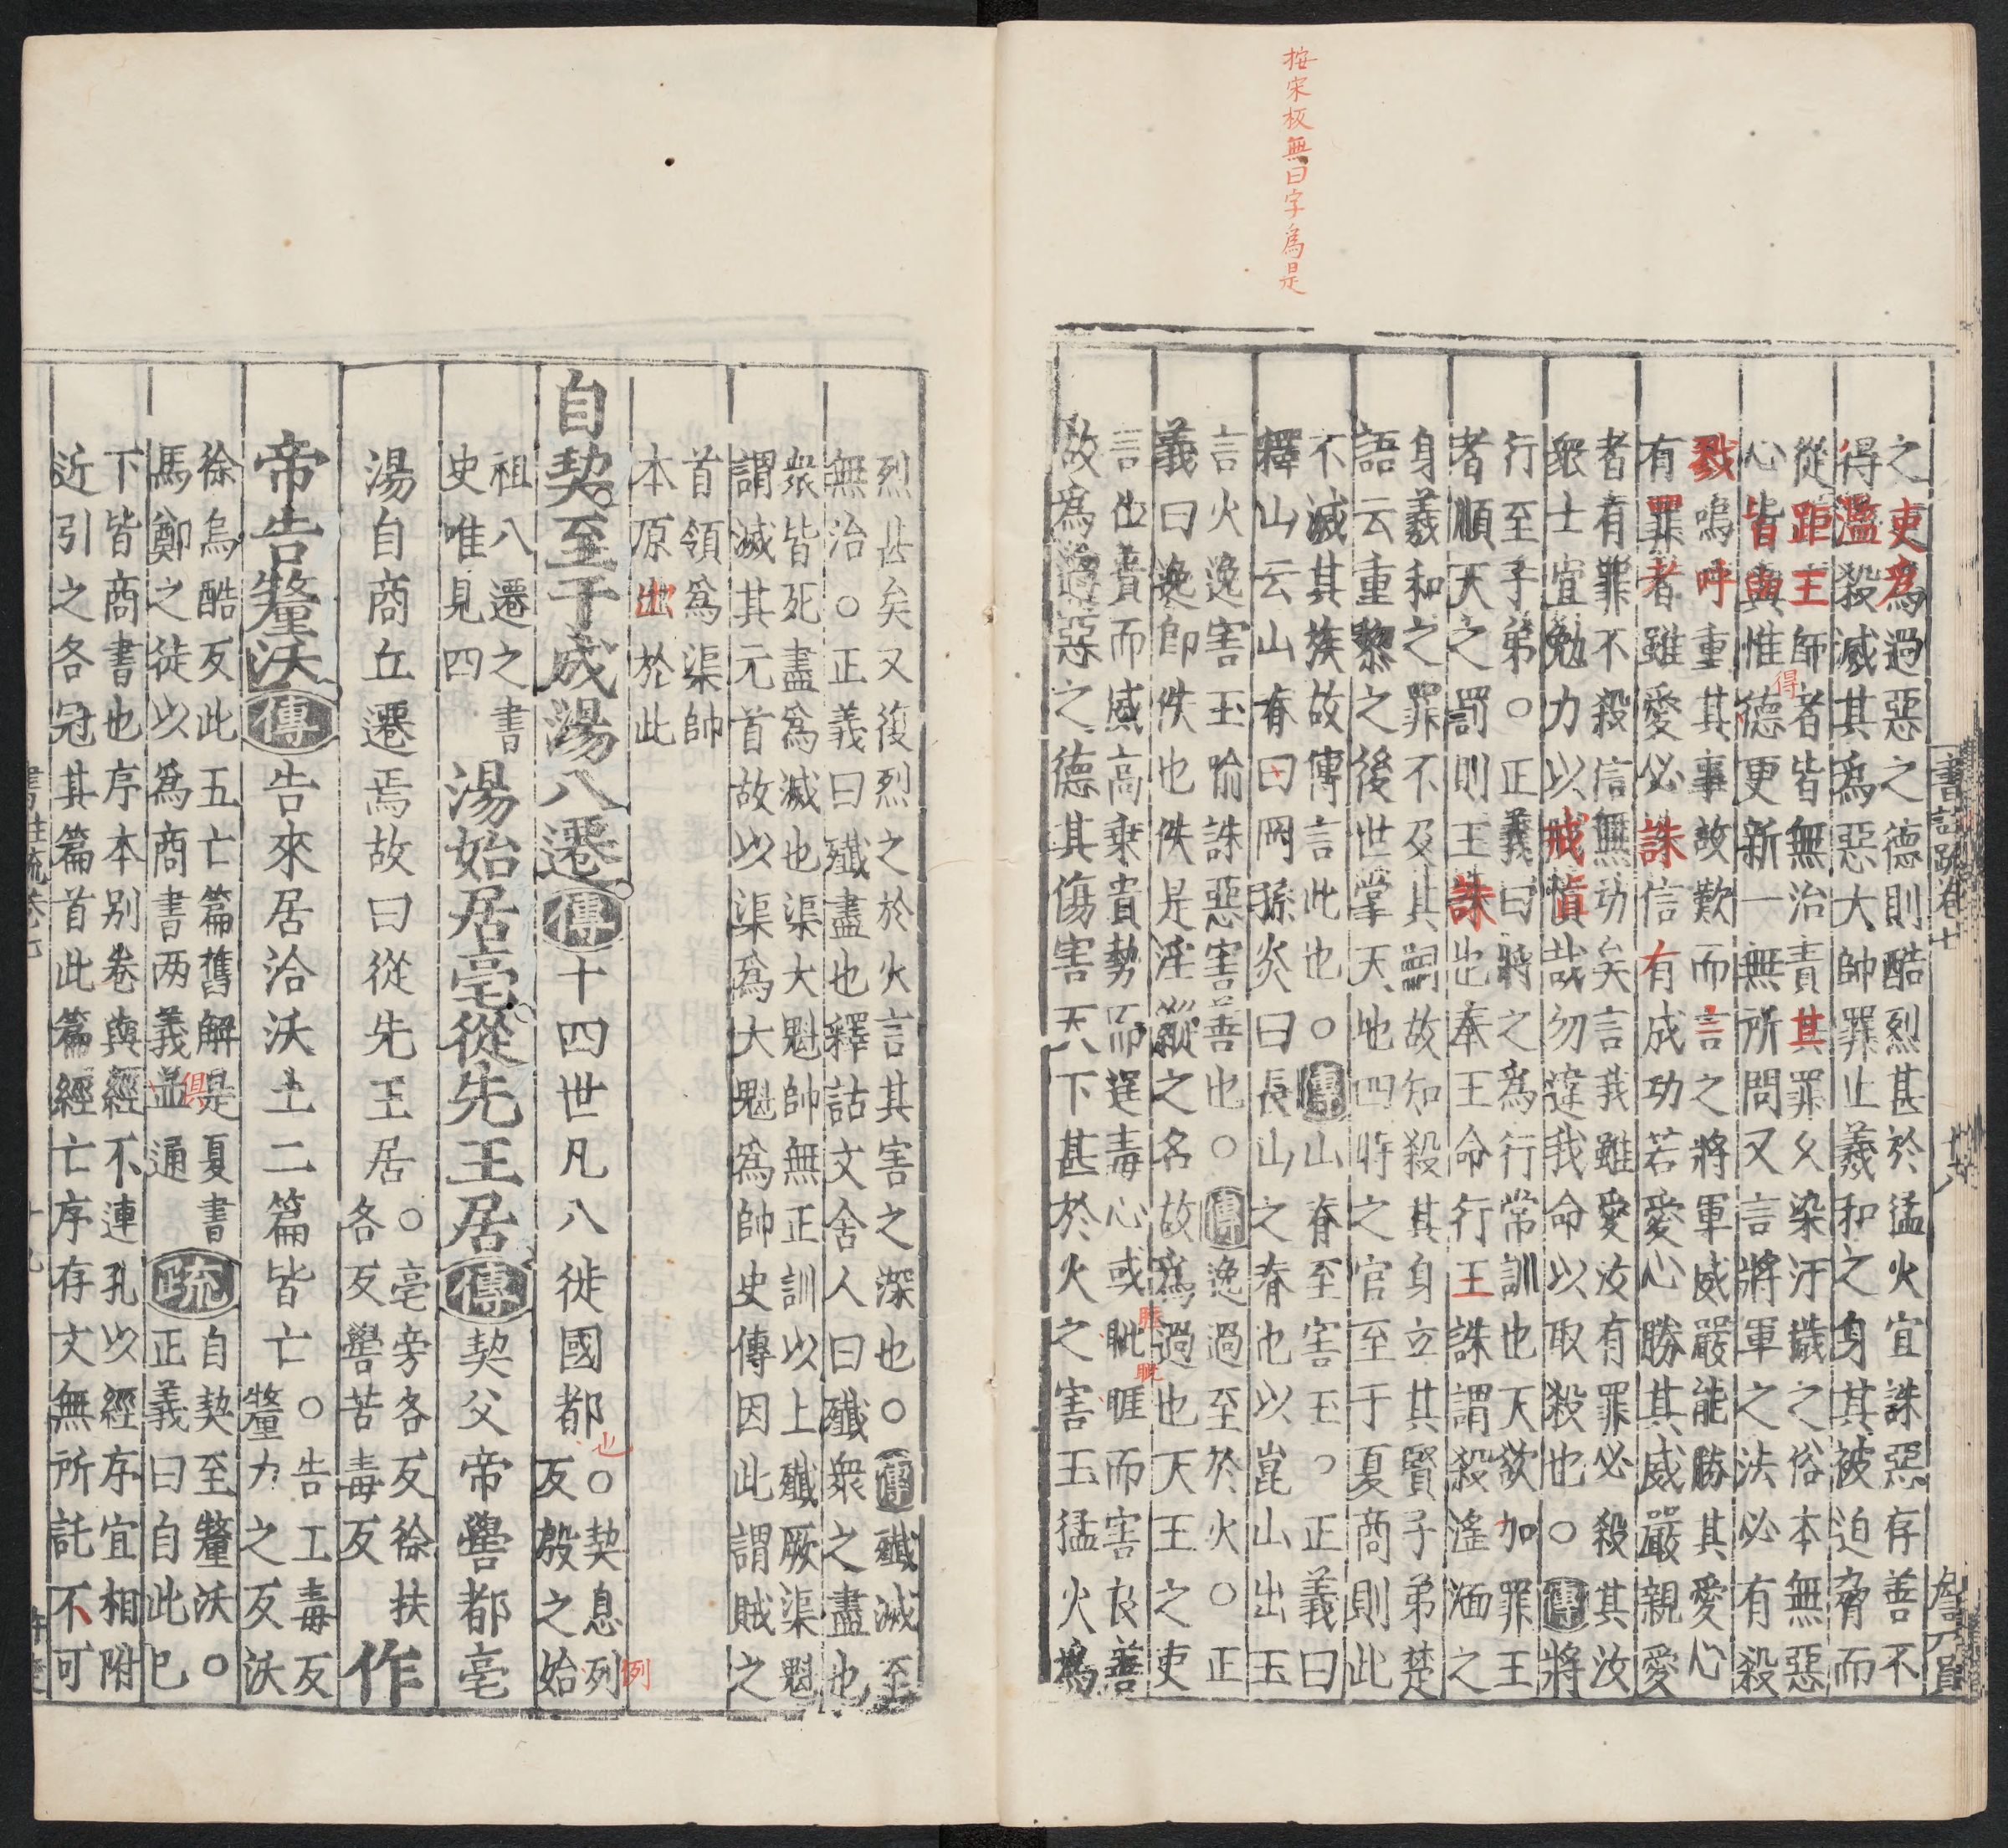 按宋板無曰字為是
之吏爲過惡之德則酷烈甚於猛火宜誅惡存善不
得濫殺滅其爲惡大帥罪止羲和之身其被迫脅而
從距王師者皆無治責其罪久染汙穢之俗本無惡
得
心皆與惟德更新一無所問又言將軍之法必有殺
戮嗚呼重其事故歎而言之將軍威嚴能勝其愛心
有罪者雖愛必誅信有成功若愛心勝其威嚴親愛
者有罪不殺信無功矣言我雖愛汝有罪必殺其汝
衆士宜勉力以戒慎哉勿違我命以取殺也○傳將
行至子弟○正義曰將之爲行常訓也天欲加罪王
者順天之罰則王誅也奉王命行王誅謂殺滛湎之
身羲和之罪不及其嗣故知殺其身立其賢子弟楚
語云重黎之後世掌天地四時之官至于夏商則此
不滅其族故傳言此也○傳山脊至害玉○正義曰
釋山云山脊曰岡孫炎曰長山之脊也以崑山出玉
言火逸害玉喻誅惡害善也○傳逸過至於火○正
義曰逸即佚也佚是淫縱之名故爲過也天王之吏
言位貴而威高乗貴勢而逞毒心或眦睚而害良善
睚
故爲過惡之德其傷害天下甚於火之害玉猛火爲
書註疏卷七
廿八
烈甚矣又復烈之於火言其害之深也○傳殲滅至
無治○正義曰殲盡也釋詁文舍人曰殲衆之盡也
衆皆死盡爲滅也渠大魁帥無正訓以上殲厥渠魁
謂滅其元首故以渠爲大魁爲帥史傳因此謂賊之
首領爲渠帥
本原出於此
自契至于成湯八遷傳十四世凡八徙國都○契息列
也
例
反殷之始
祖八遷之書
史唯見四
湯始居亳從先王居傳契父帝嚳都亳
湯自商丘遷焉故曰從先王居○亳旁各反徐扶
各反嚳苦毒反
作
帝告釐沃傳告來居治沃土二篇皆亡○告工毒反
釐力之反沃
徐烏酷反此五亡篇舊解是夏書
俱
馬鄭之徒以爲商書两義並通
疏自契至釐沃○
正義曰自此已
下皆商書也序本别卷與經不連孔以經序宜相附
近引之各冠其篇首此篇經亡序存文無所託不可